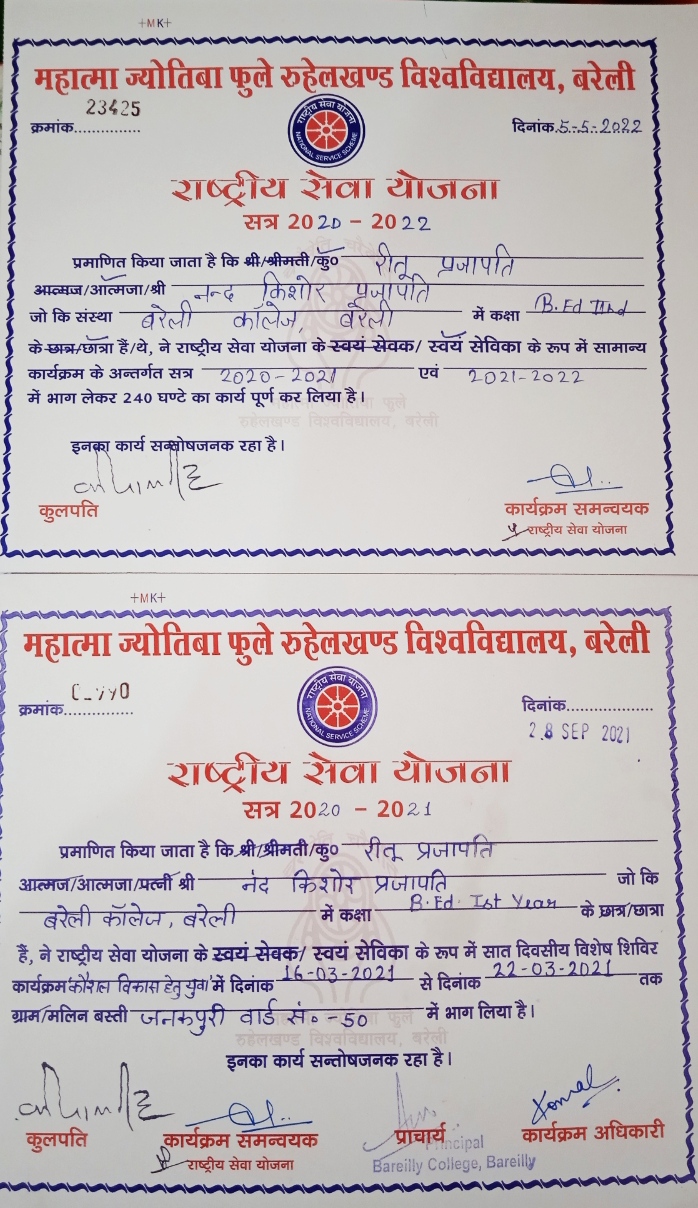 +MK+
महात्मा ज्योतिबा फुले रुहेलखण्ड विश्वविद्यालय, बरेली
23425
क्रमांक............... दिनांक.5-5-2022
राष्ट्रीय सेवा योजना
NATIONAL SERVICE SCHEME
राष्ट्रीय सेवा योजना
सत्र 2020 - 2022
प्रमाणित किया जाता है कि श्री/श्रीमती/कु० रीतू प्रजापति
आत्मज/आत्मजा/श्री नन्द किशोर प्रजापति
जो कि संस्था बरेली कॉलेज, बरेली में कक्षा B.Ed IInd
के छात्र/छात्रा हैं/थे, ने राष्ट्रीय सेवा योजना के स्वयं सेवक/ स्वयं सेविका के रूप में सामान्य
कार्यक्रम के अन्तर्गत सत्र 2020-2021 एवं 2021-2022
में भाग लेकर 240 घण्टे का कार्य पूर्ण कर लिया है।
रुहेलखण्ड विश्वविद्यालय, बरेली
इनका कार्य सन्तोषजनक रहा है।
कुलपति कार्यक्रम समन्वयक
राष्ट्रीय सेवा योजना
+MK+
महात्मा ज्योतिबा फुले रुहेलखण्ड विश्वविद्यालय, बरेली
क्रमांक............... दिनांक...................
28 SEP 2021
राष्ट्रीय सेवा योजना
NATIONAL SERVICE SCHEME
राष्ट्रीय सेवा योजना
सत्र 2020 - 2021
प्रमाणित किया जाता है कि श्री/श्रीमती/कु० रीतू प्रजापति
आत्मज/आत्मजा/पत्नी श्री नंद किशोर प्रजापति जो कि
बरेली कॉलेज, बरेली में कक्षा B.Ed. Ist Year के छात्र/छात्रा
हैं, ने राष्ट्रीय सेवा योजना के स्वयं सेवक/ स्वयं सेविका के रूप में सात दिवसीय विशेष शिविर
कार्यक्रम कौशल विकास हेतु युवा में दिनांक 16-03-2021 से दिनांक 22-03-2021 तक
ग्राम/मलिन बस्ती जनकपुरी वार्ड सं०-50 में भाग लिया है।
रुहेलखण्ड विश्वविद्यालय, बरेली
इनका कार्य सन्तोषजनक रहा है।
Komal
कुलपति कार्यक्रम समन्वयक प्राचार्य कार्यक्रम अधिकारी
राष्ट्रीय सेवा योजना Principal
Bareilly College, Bareilly